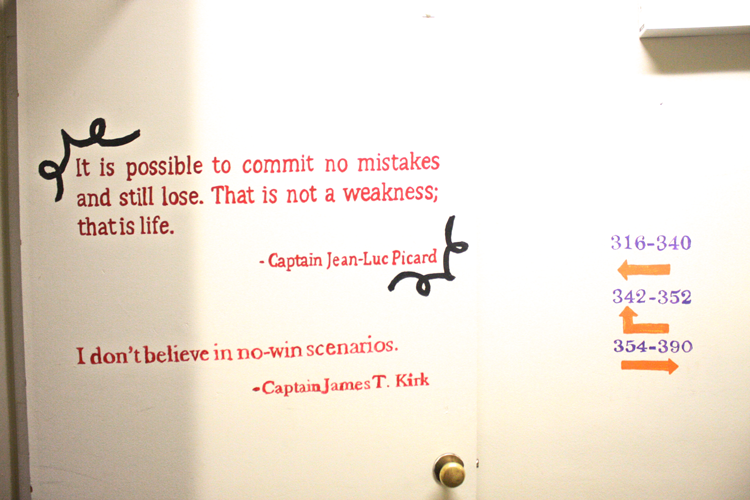 It is possible to commit no mistakes
and still lose. That is not a weakness;
that is life.
- Captain Jean-Luc Picard
I don't believe in no-win scenarios.
-Captain James T. Kirk
316-340
342-352
354-390